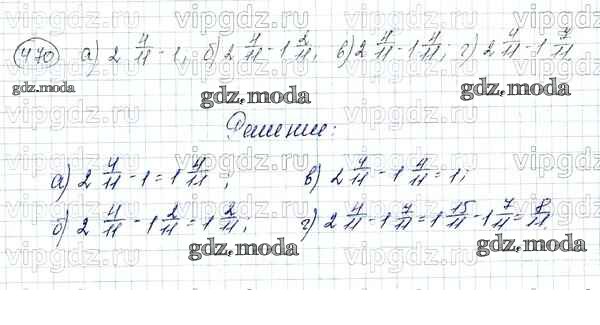 vipgdz.ru vipgdz.ru vipgdz.ru vipgdz.ru
470 а) 2 4/11 - 1; б) 2 4/11 - 1 2/11; в) 2 4/11 - 1 4/11; г) 2 4/11 - 1 7/11.
gdz.moda gdz.moda gdz.moda
vipgdz.ru vipgdz.ru vipgdz.ru vipgdz.ru
Решение:
vipgdz.ru vipgdz.ru vipgdz.ru vipgdz.ru
а) 2 4/11 - 1 = 1 4/11; в) 2 4/11 - 1 4/11 = 1;
б) 2 4/11 - 1 2/11 = 1 2/11; г) 2 4/11 - 1 7/11 = 1 15/11 - 1 7/11 = 8/11.
gdz.moda gdz.moda
vipgdz.ru vipgdz.ru vipgdz.ru vipgdz.ru